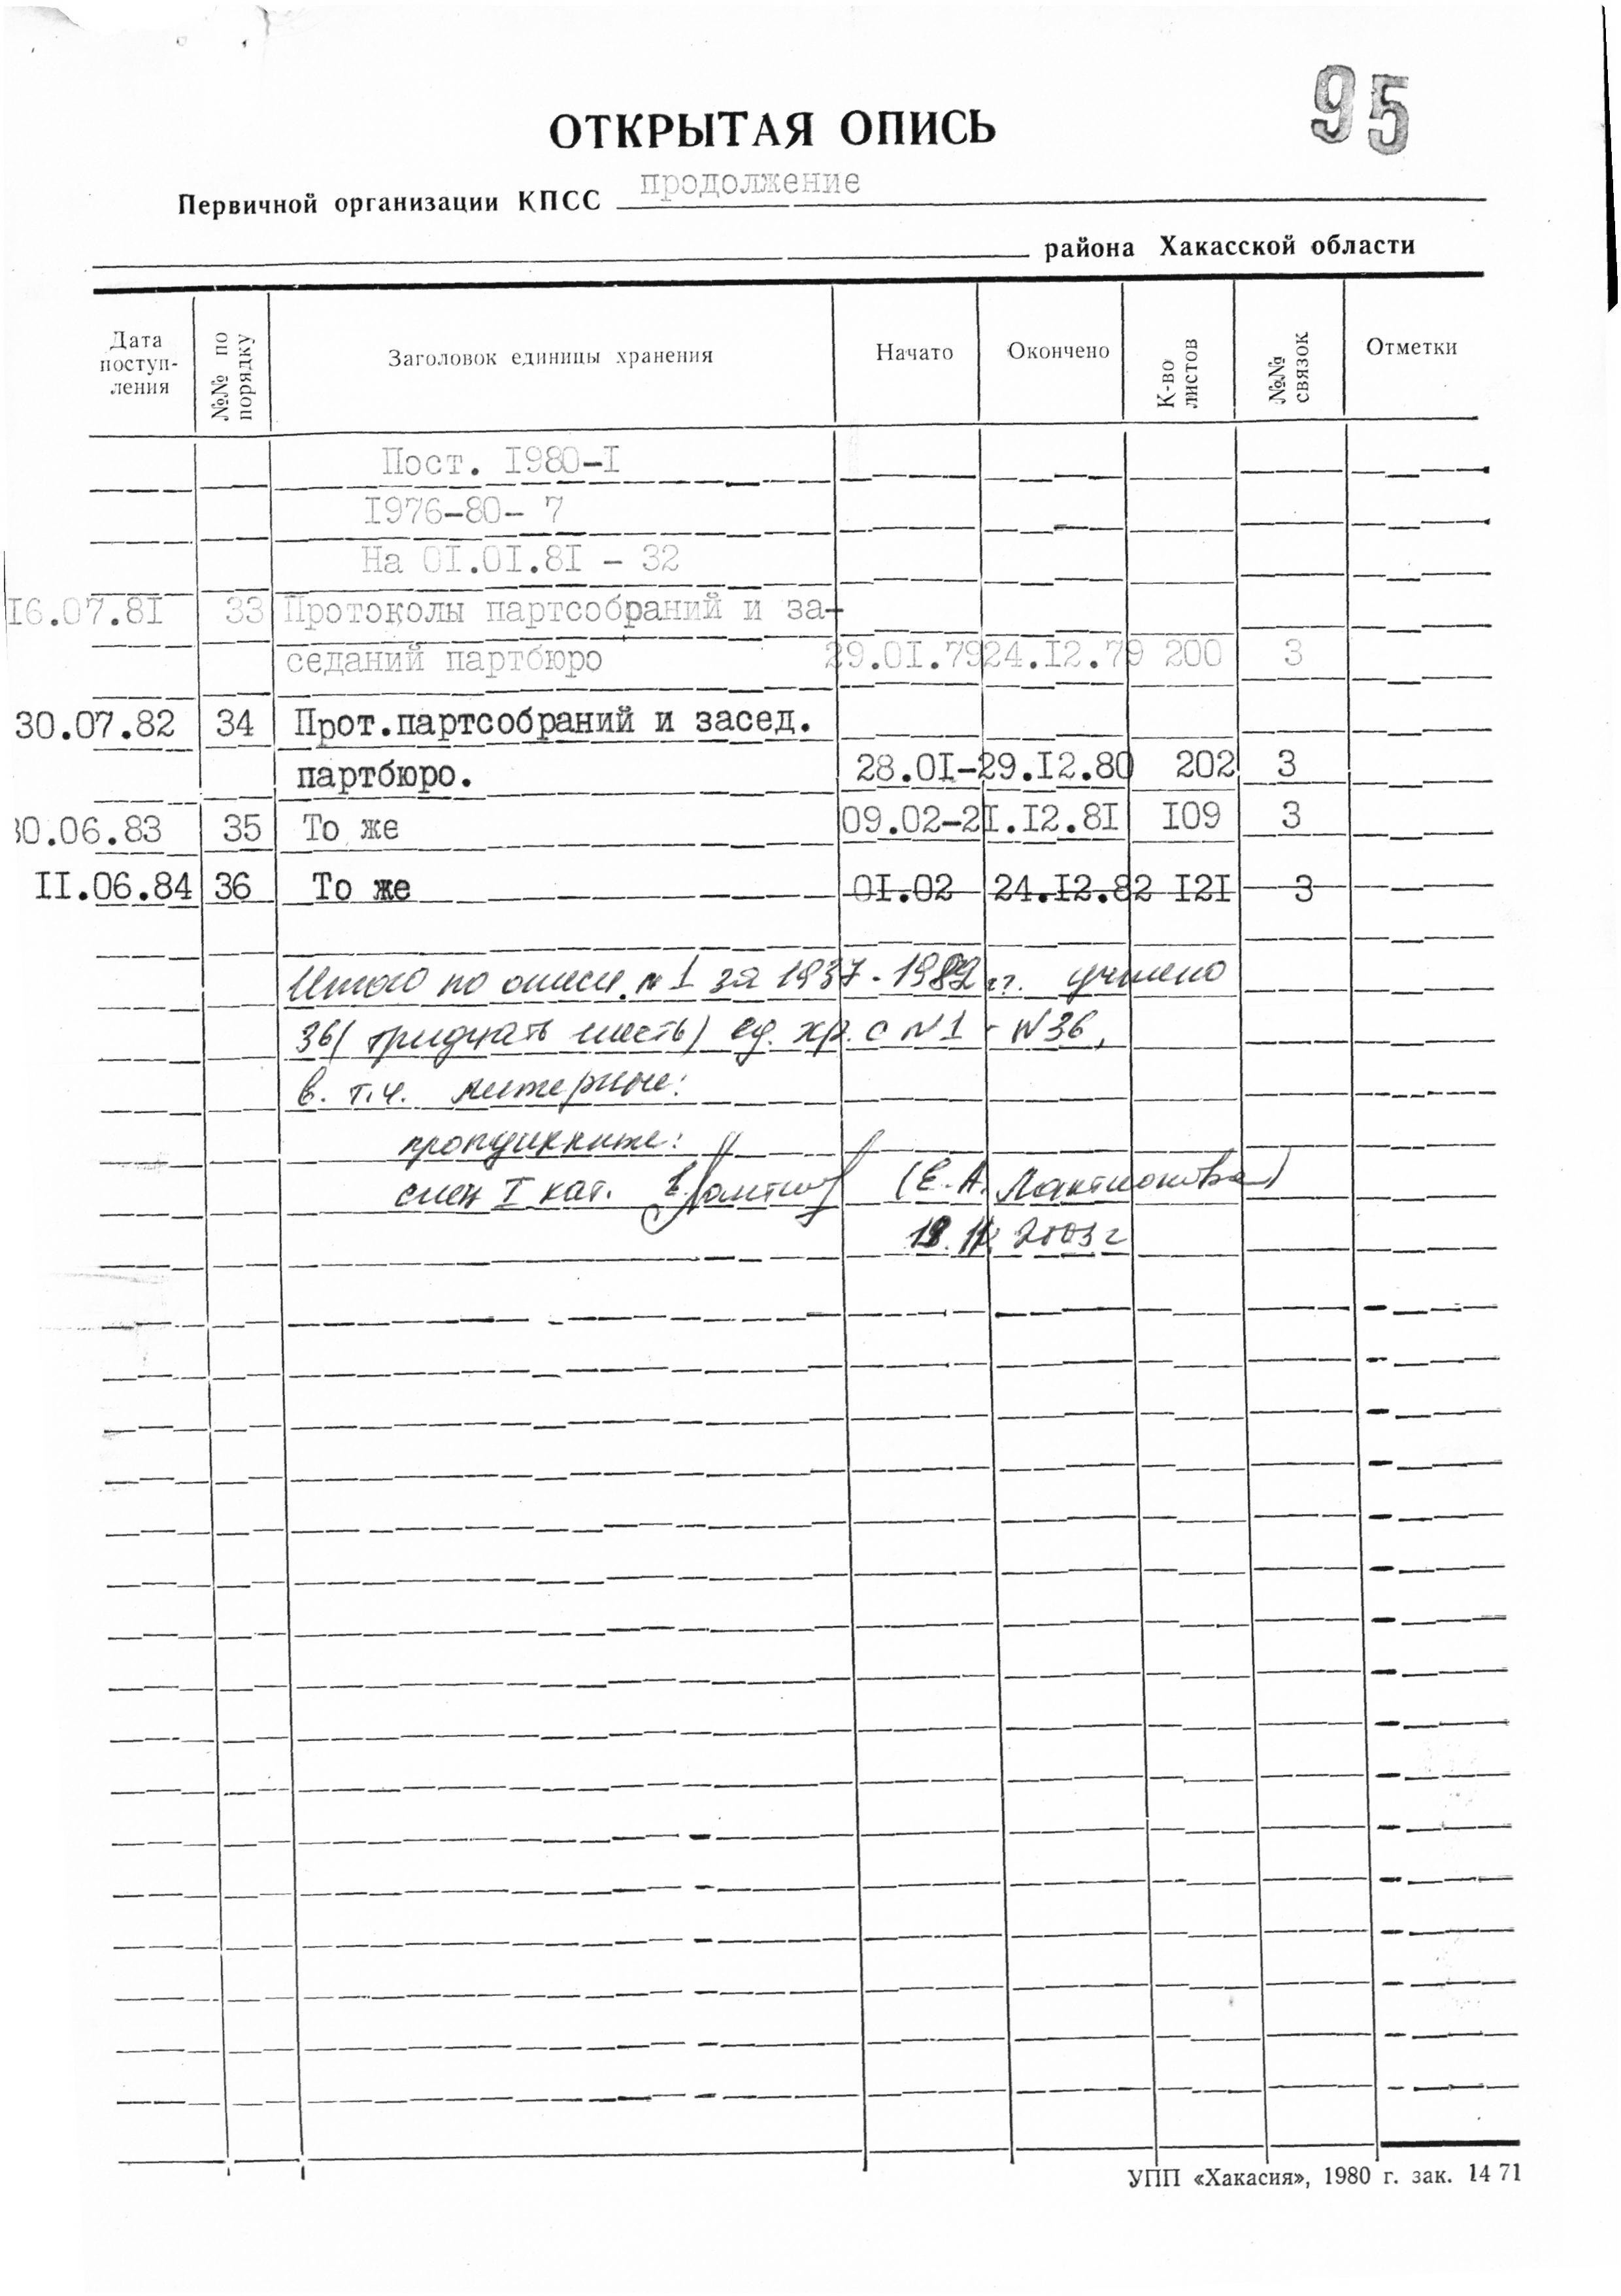 95
ОТКРЫТАЯ ОПИСЬ
Первичной организации КПСС продолжение
района Хакасской области
Дата поступ- ления №№ по порядку Заголовок единицы хранения Начато Окончено К-во листов №№ связок Отметки
Пост. I980-I
I976-80- 7
На 0I.0I.8I - 32
I6.07.8I 33 Протоколы партсобраний и за-
седаний партбюро 29.0I.79 24.I2.79 200 3
30.07.82 34 Прот.партсобраний и засед.
партбюро. 28.0I-29.I2.80 202 3
30.06.83 35 То же 09.02-2I.I2.8I I09 3
II.06.84 36 То же 0I.02 24.I2.82 I2I 3
Итого по описи № 1 за 1937-1982 гг. учтено
36 (тридцать шесть) ед. хр. с N1 - N36,
в. т.ч. литерные:
пропущенные:
спец I кат. (Е. А. Лактионова)
18. 11. 2003 г
УПП «Хакасия», 1980 г. зак. 1471